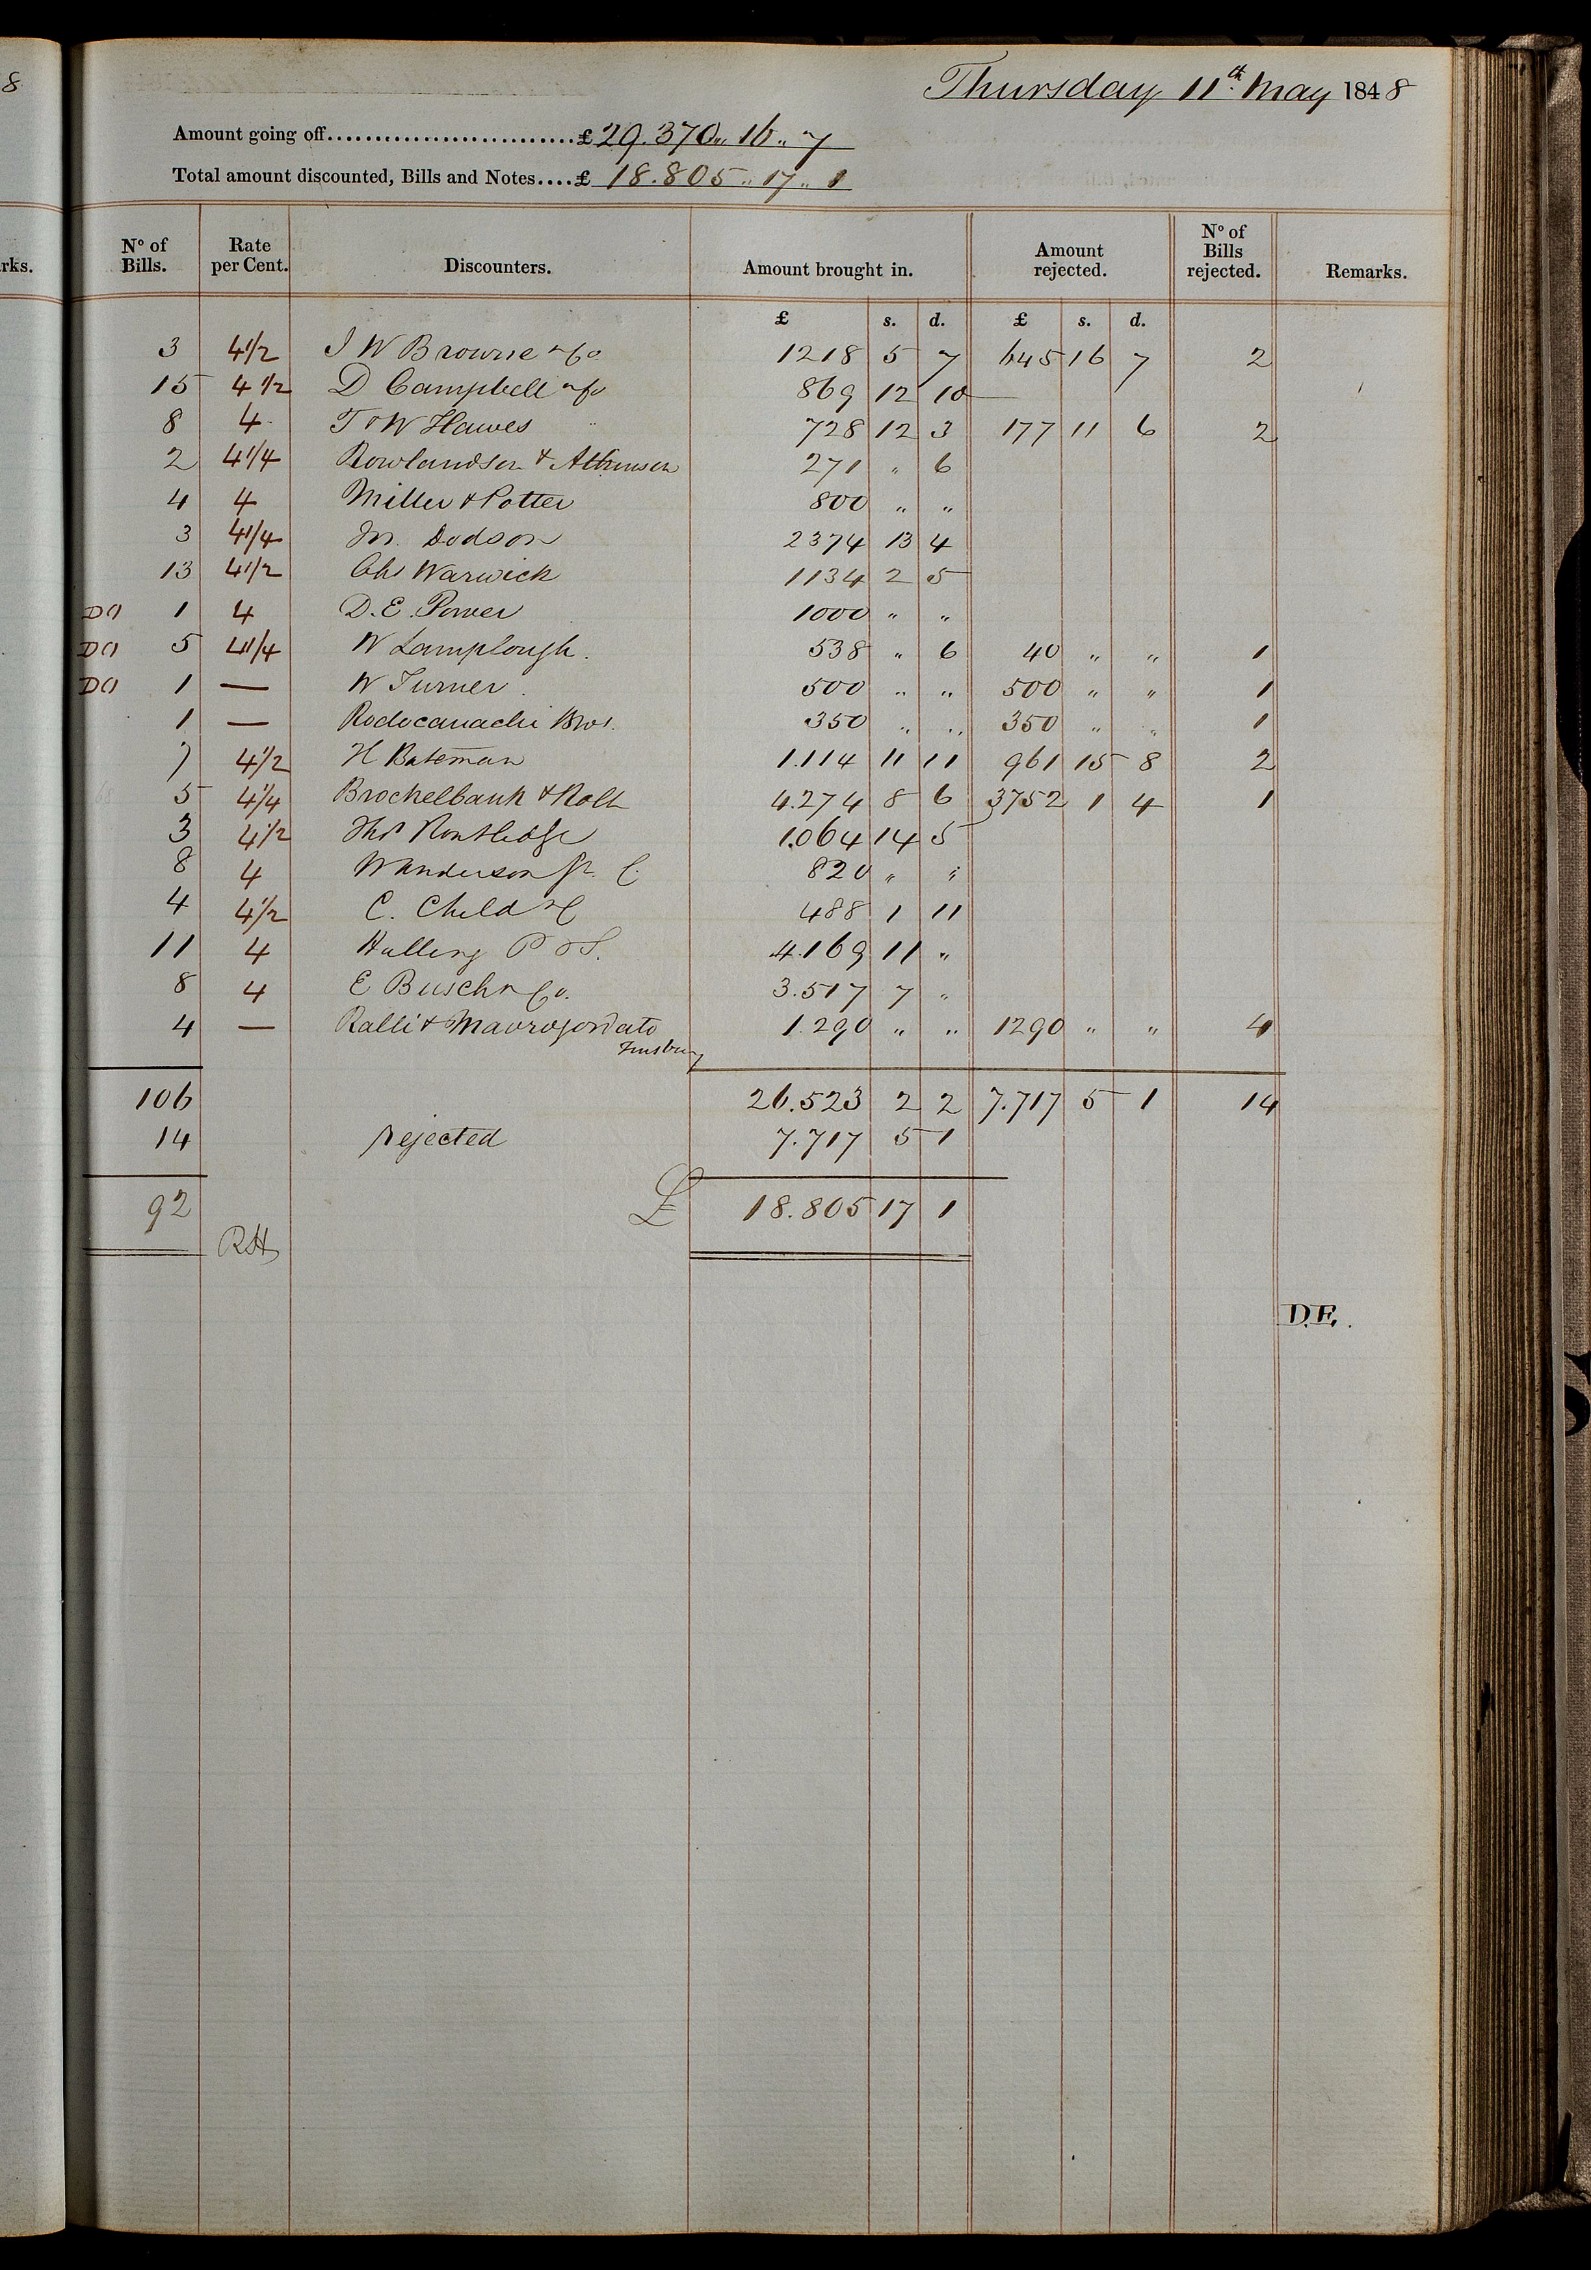 8
Thursday 11th May 1848
Amount going off........................£ 29.370 " 16 " 7
Total amount discounted, Bills and Notes....£ 18.805 " 17 " 1
rks.
No of Bills. Rate per Cent. Discounters. Amount brought in. Amount rejected. No of Bills rejected. Remarks.
£ s. d. £ s. d.
3 4 1/2 J W Browne & Co 1218 5 7 645 16 7 2
15 4 1/2 D Campbell & Co 869 12 10
8 4 T & W Hawes 728 12 3 177 11 6 2
2 4 1/4 Rowlandson & Atkinson 271 " 6
4 4 Miller & Potter 800 " "
3 4 1/4 Jn. Dodson 2374 13 4
13 4 1/2 Chs Warwick 1134 2 5
DO 1 4 D. E. Power 1000 " "
DO 5 4 1/4 W Lamplough. 538 " 6 40 " " 1
DO 1 — W Turner. 500 " " 500 " " 1
1 — Rodocanachi Bros. 350 " " 350 " " 1
7 4 1/2 H Bateman 1.114 11 11 961 15 8 2
5 4 1/4 Brockelbank & Rolt 4.274 8 6 3752 1 4 1
3 4 1/2 Thos Routledge 1.064 14 5
8 4 W Anderson Jr. 820 " "
4 4 1/2 C. Child & C 488 1 11
11 4 Halling P & S. 4.169 11 "
8 4 E Busch & Co. 3.517 7 "
4 — Ralli & Mavrogordato 1.290 " " 1290 " " 4
Finsbury
106 26.523 2 2 7.717 5 1 14
14 rejected 7.717 5 1
92 £ 18.805 17 1
RH
D.E.